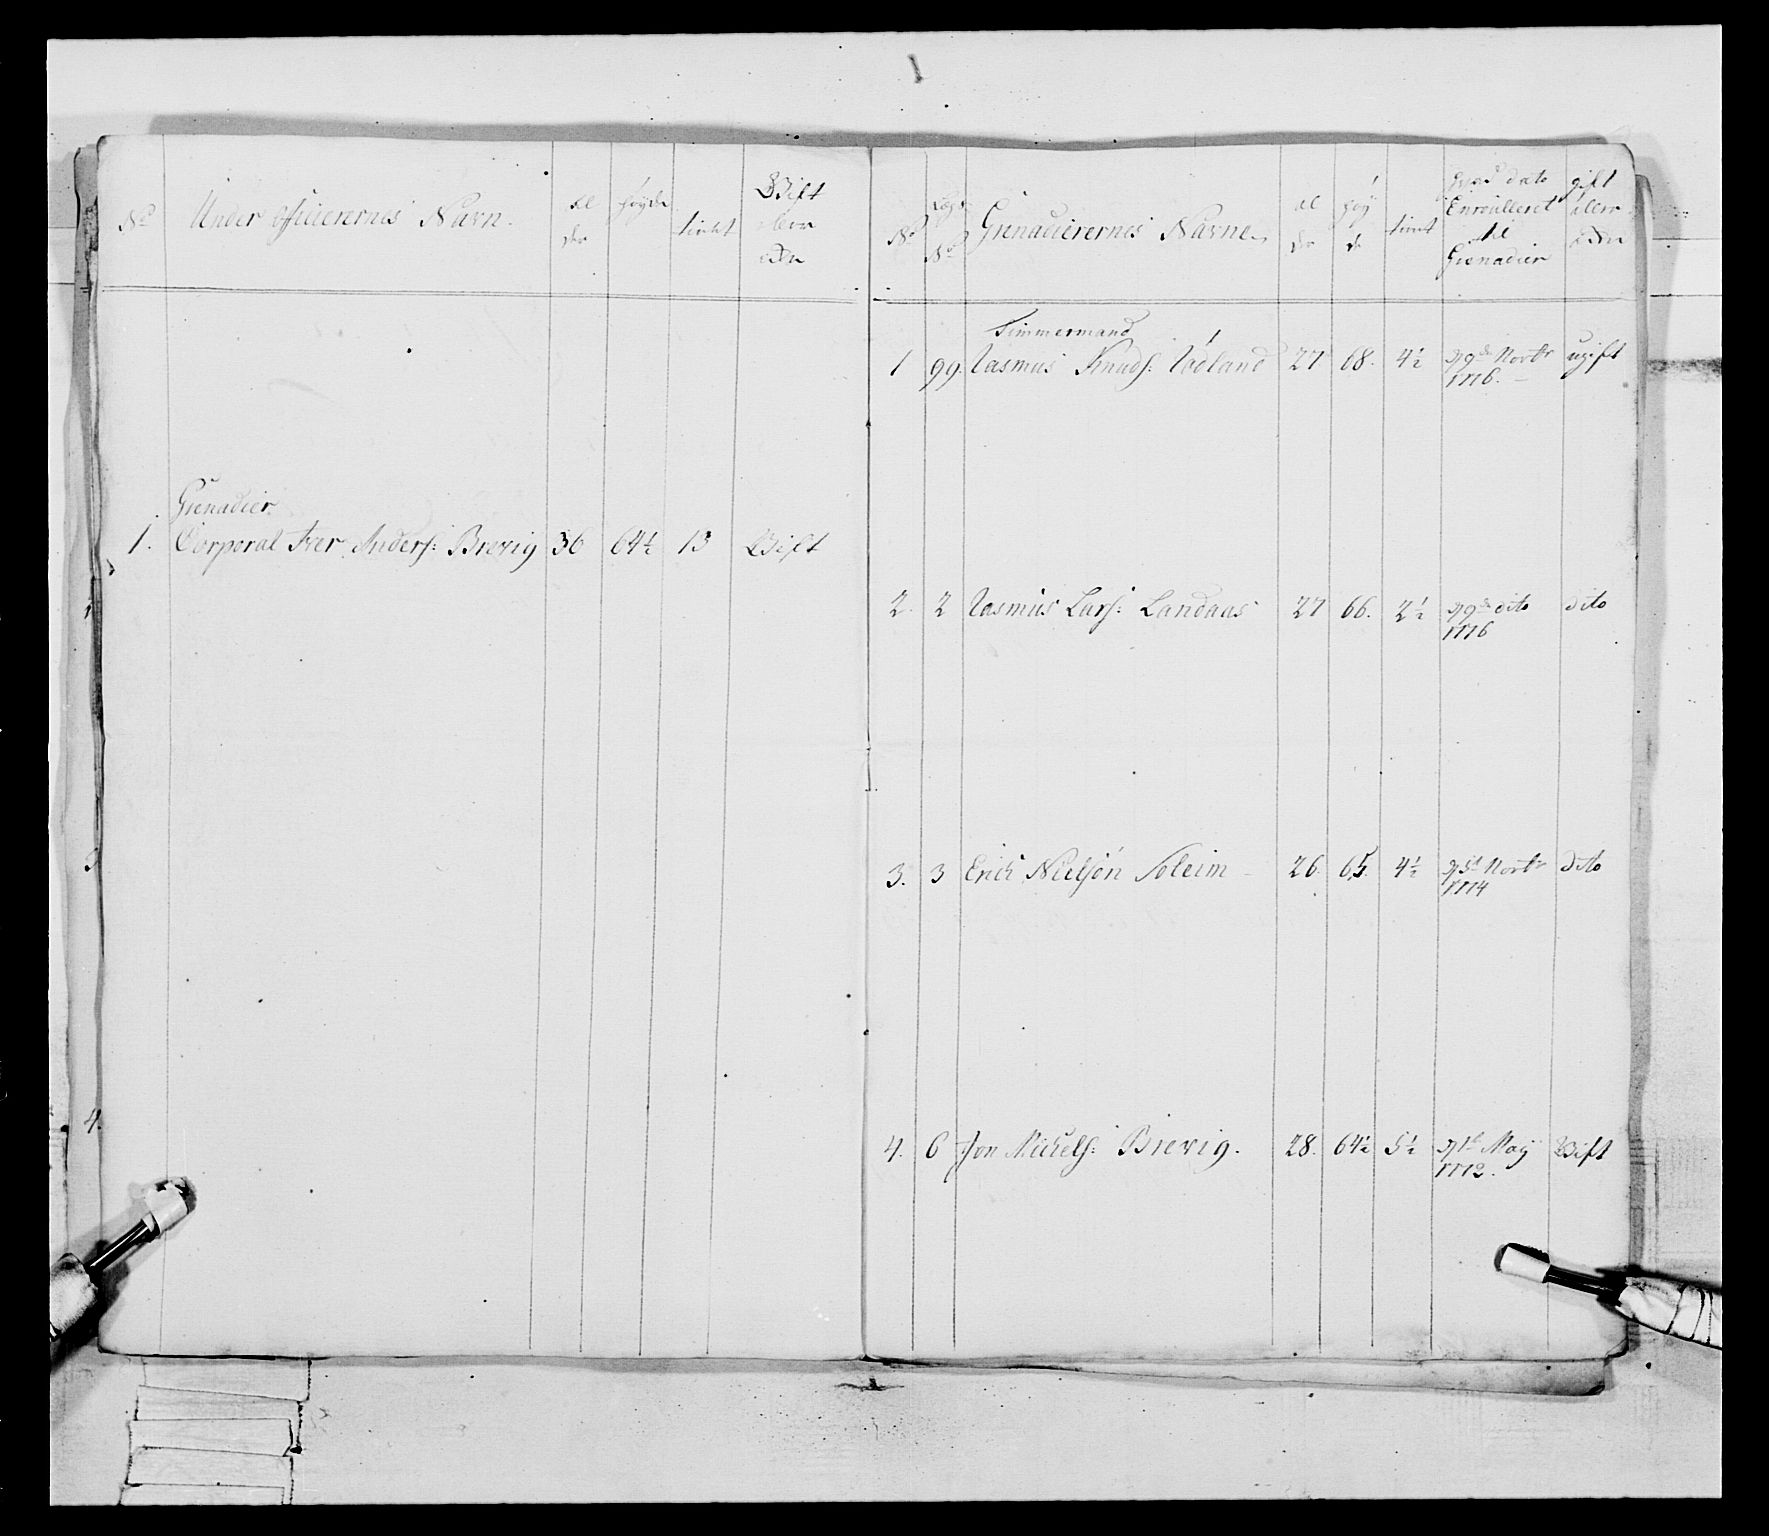 No
Under Officierernes Navn.
Al
der
Høyde
tient
Gift
eller
eÿ
1.
Grenadier
Corporal Iver Anders: Brevig 36 64½ 13 Gift
No
Lægs
No
Grenadierernes Navne
al
der
høy
de
tient
hvad dato
Enroulleret
til
Grenadier
gift
eller
Timmermand
1 99. Rasmus Knuds: Rødland 27 68. 4½ d 9de Novbr ugift
1776.
2. 2 Rasmus Lars: Landaas 27 66. 2½ d 9de dito dito
1776
3. 3 Erich Nielsön Soleim 26. 65. 4½ Novbr dito
1774
4. 6 Jon Michels: Brevig. 28. 64½ 5½ d 1te May Gift
1772.
4.